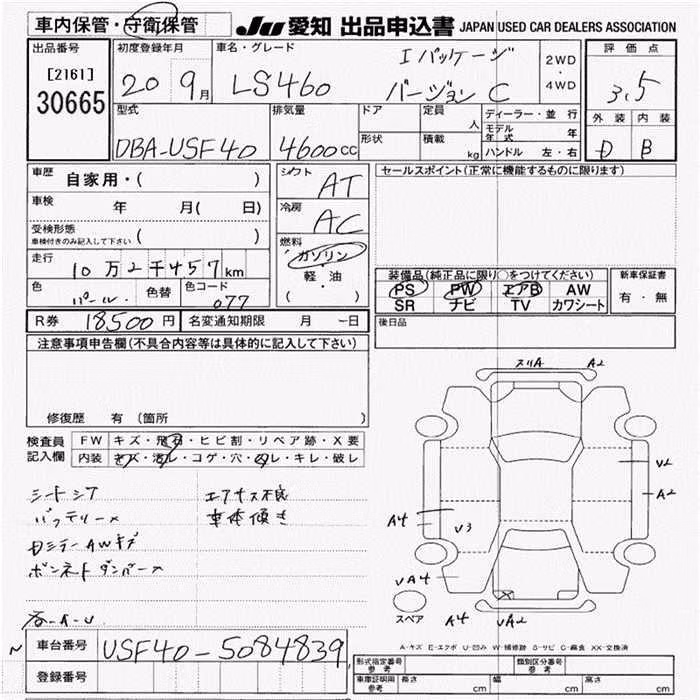 車内保管・守衛保管
JU 愛知 出品申込書 JAPAN USED CAR DEALERS ASSOCIATION
出品番号
[2161]
30665
初度登録年月
20 9月
車名・グレード
LS460
Iパッケージ
バージョンC
2WD
・
4WD
評価点
3.5
外装 内装
D B
型式
DBA-USF40
排気量
4600cc
ドア
形状
定員 人
積載 kg
ディーラー・並行
モデル年式 年
ハンドル 左・右
車歴 自家用・( )
車検 年 月( 日)
受検形態
車検付きのみ記入して下さい ( )
走行 10万2千457km
色 パール. 色替 色コード 077
シフト AT
冷房 AC
燃料
ガソリン
・
軽・油
( ・ )
R券 18500円 名変通知期限 月 日
セールスポイント(正常に機能するものに限ります)
装備品(純正品に限り○をつけてください)
PS PW エアB AW
SR ナビ TV カワシート
新車保証書
有・無
後日品
注意事項申告欄(不具合内容等は具体的に記入して下さい)
修復歴 有 〔箇所 〕
検査員記入欄
FW キズ・飛石・ヒビ割・リペア跡・X要
内装 キズ・汚レ・コゲ・穴・ヌレ・キレ・破レ
シートシワ
エアサス不良
バッテリー×
車体傾き
AWキズ
ボンネットダンパー×
スリA A2
V2
A2
A4
V3
VA4
A4
VA2
スペア
A-キズ E-エクボ U-凹み W-補修跡 S-サビ C-腐食 XX-交換済
車台番号 USF40-5084839
登録番号
形式指定番号 参考
類別区分番号 参考
車庫証明用 参考 長さ cm 幅 cm 高さ cm